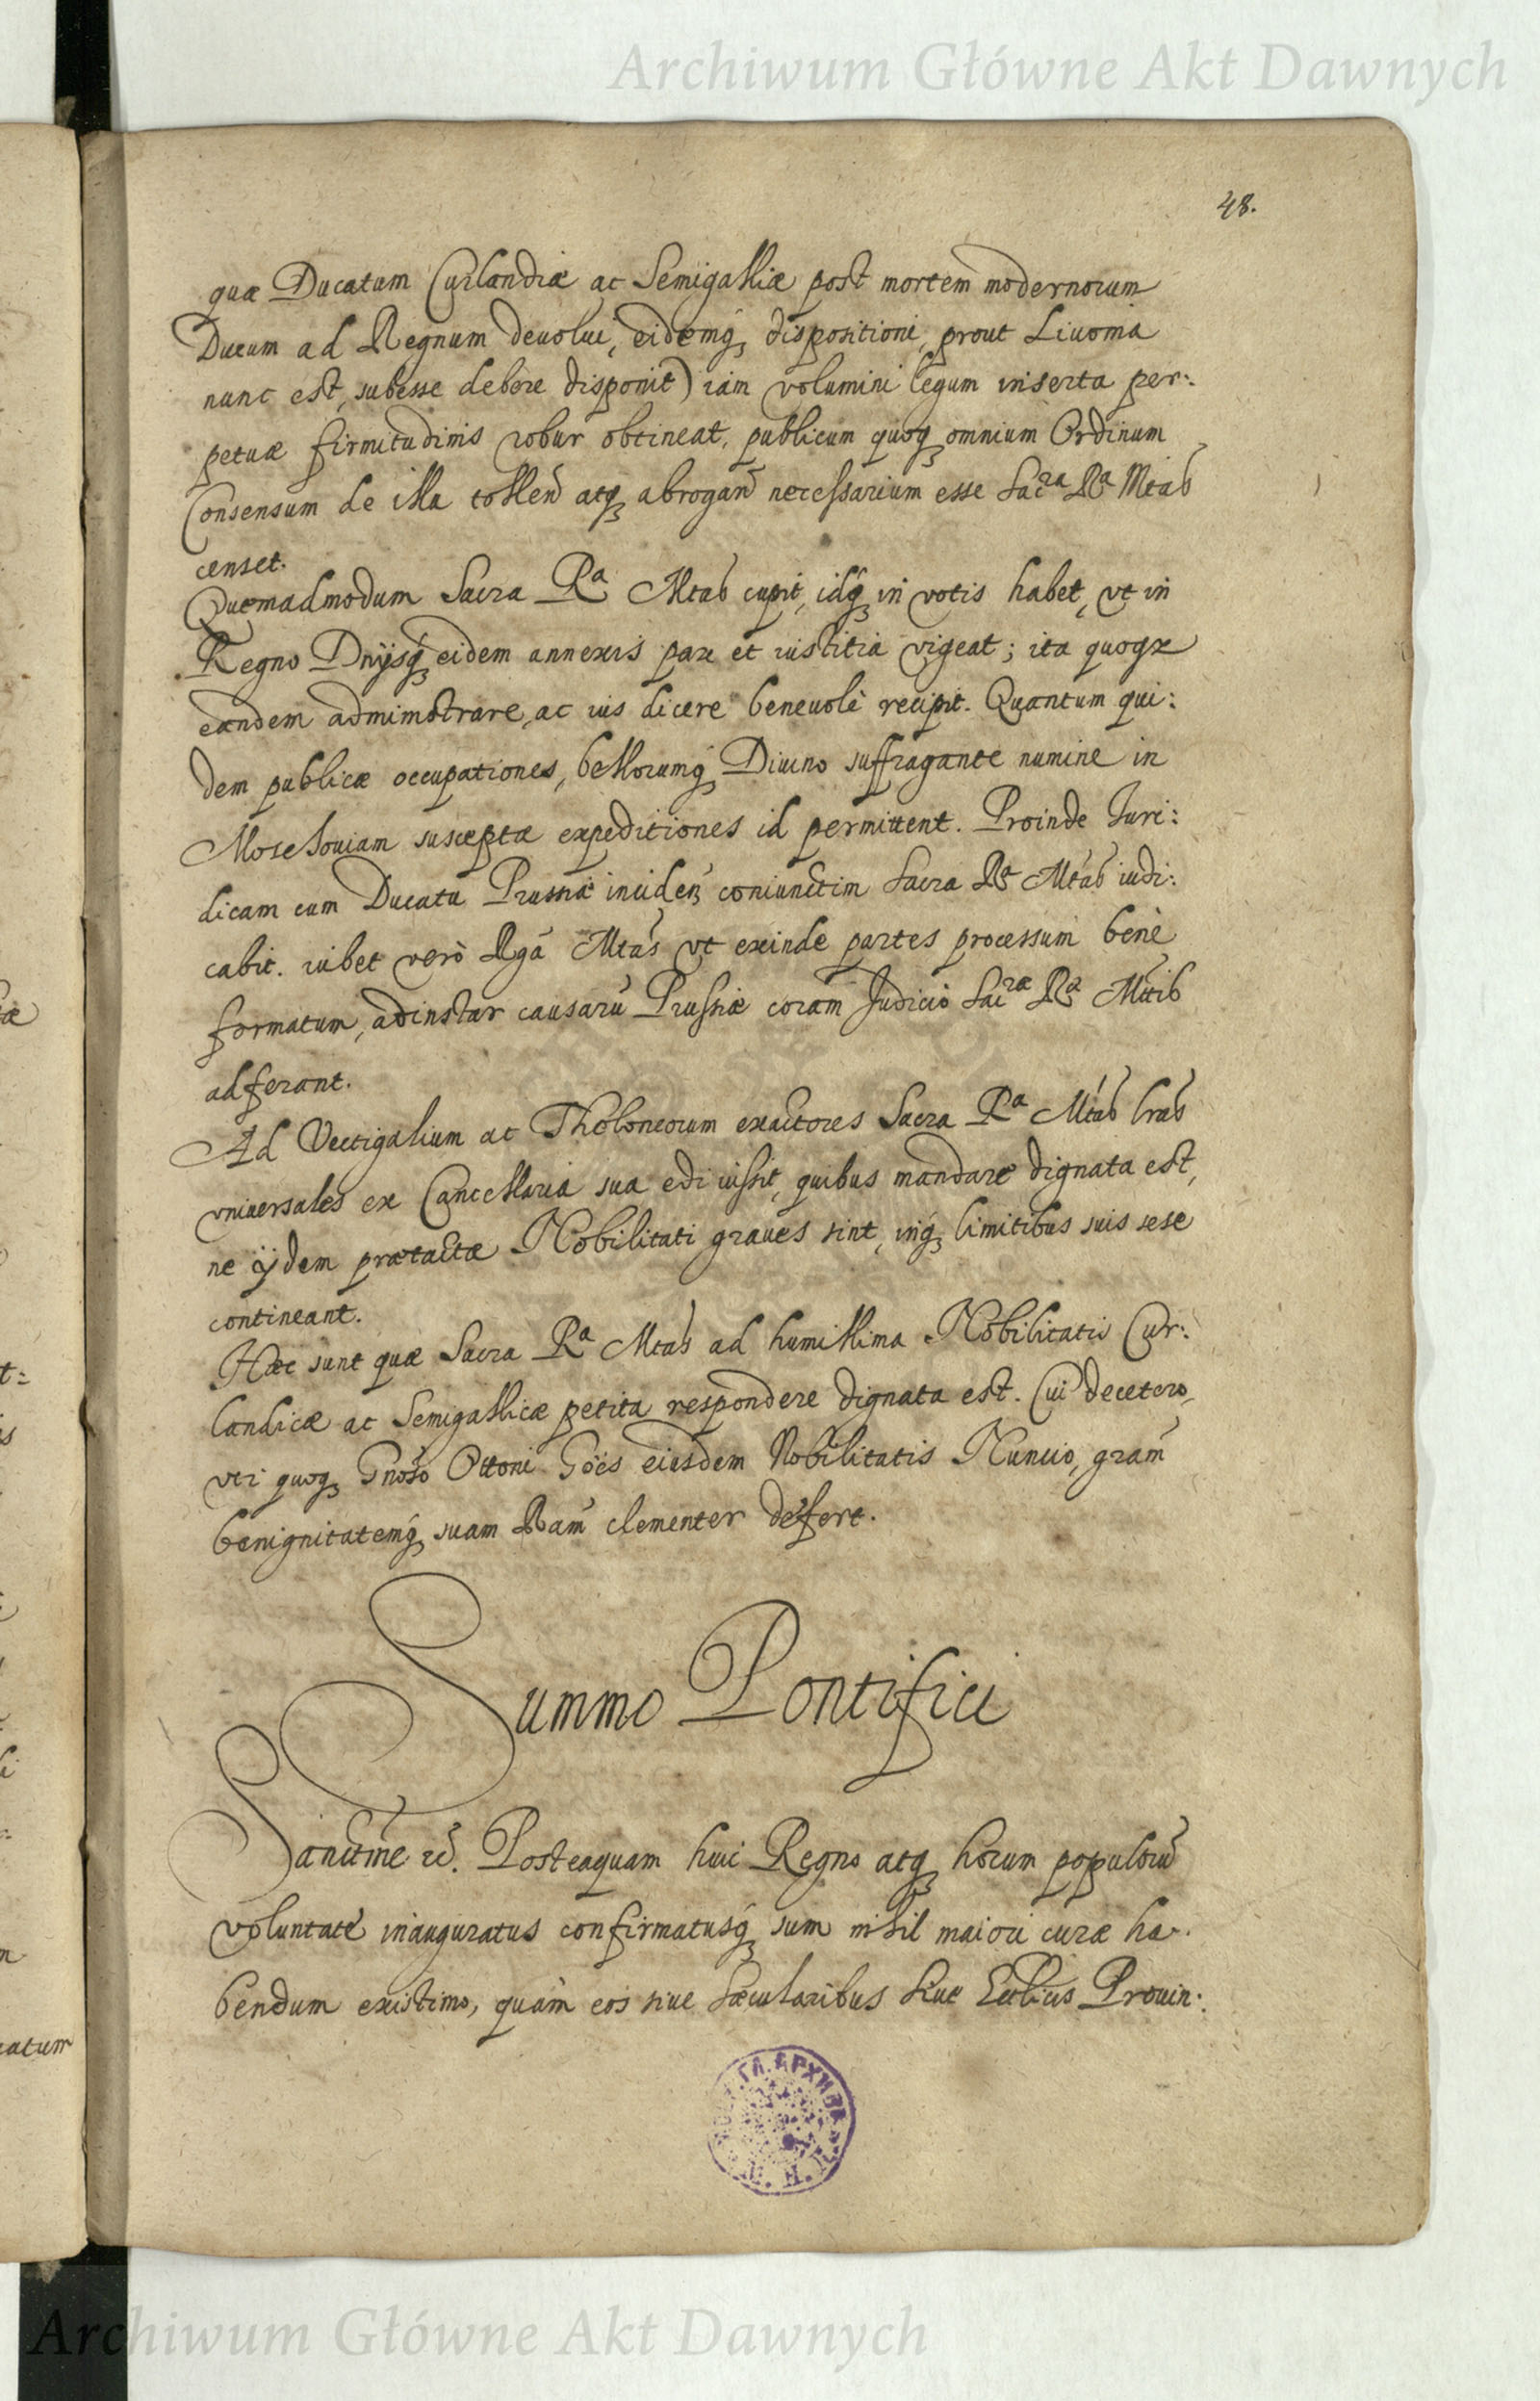 Archiwum Główne Akt Dawnych
48.
quæ Ducatum Curlandiæ ac Semigalliæ post mortem modernorum
Ducum ad Regnum deuolui, eidemq, dispositioni, prout Liuonia
nunc est, subesse debere disponit) iam volumini legum inserta per:
petuæ firmitudinis robur obtineat, publicum quoq omnium Ordinum
Consensum de illa tollen atq abrogan necessarium esse Sacra Ra Mtas
censet.
Quemadmodum Sacra Ra Mtas cupit, idq in votis habet, vt in
Regno Dnijsq eidem annexis pax et iustitia vigeat; ita quoqz
eandem administrare, ac ius dicere beneuolè recipit. Quantum qui:
dem publicæ occupationes, bellorumq Diuino suffragante numine in
Moschouiam susceptæ expeditiones id permittent. Proinde Iuri:
dicam cum Ducatu Prussiæ inciden coniunctim Sacra Ra Mtas iudi:
cabit. iubet verò Rga Mtas vt exinde partes processum benè
formatum, adinstar causarū Prussiæ coram Judicio Sacræ Ræ Mttis
adferant.
Ad Vectigalium ac Tholoneorum exactores Sacra Ra Mtas lras
vniuersales ex Cancellaria sua edi iussit, quibus mandare dignata est,
ne ijdem prætactæ Nobilitati graues sint, inq limitibus suis sese
contineant.
Hæc sunt quæ Sacra Ra Mtas ad humillima Nobilitatis Cur:
landicæ ac Semigallicæ petita respondere dignata est. Cui decetero,
vti quoq Gnoso Ottoni Göes eiusdem Nobilitatis Nuncio, gram
benignitatemq suam Ram clementer defert.
Summo Pontifici
Sanctme etc. Posteaquam huic Regno atq horum populorū
voluntate inauguratus confirmatusq sum nihil maiori curæ ha:
bendum existimo, quàm eos siue Sæcularibus siue Ecclicis Prouin:
Archiwum Główne Akt Dawnych